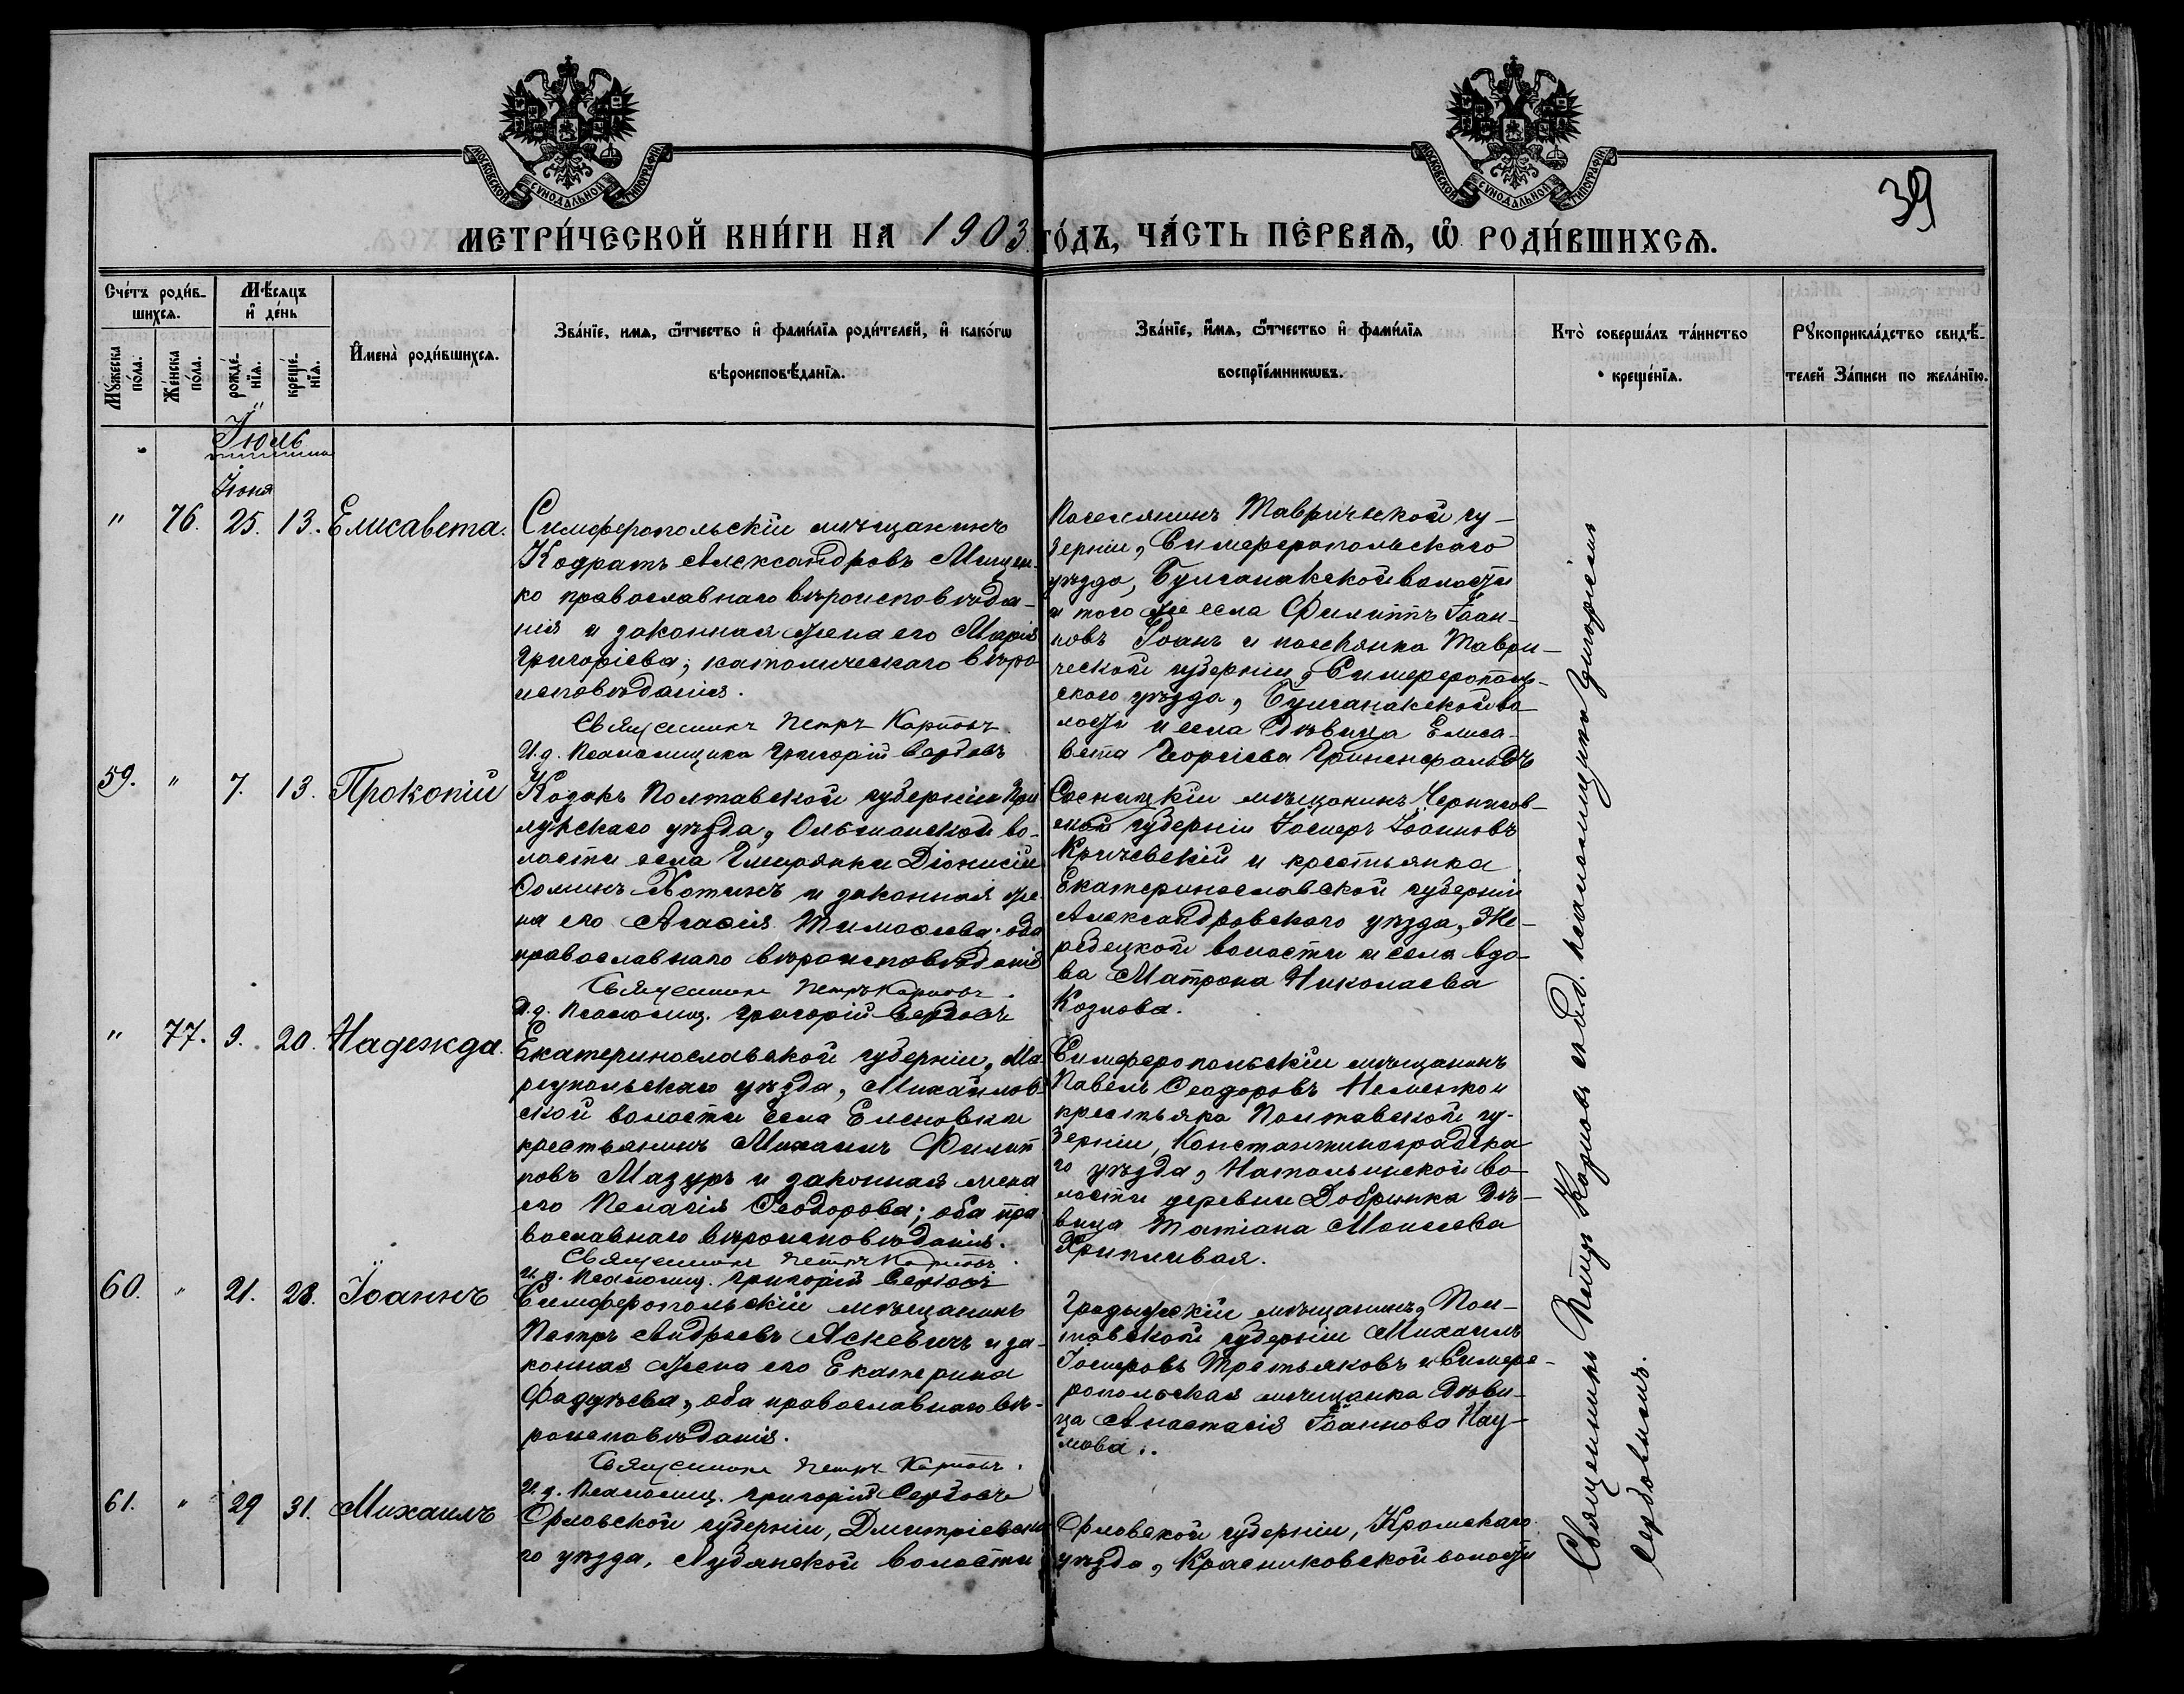 МОСКОВСКОЙ СѴНОДАЛЬНОЙ ТИПОГРАФІИ
МОСКОВСКОЙ СѴНОДАЛЬНОЙ ТИПОГРАФІИ
39
МЕТРИ́ЧЕСКОЙ КНИ́ГИ НА 1903 ГО́ДЪ, ЧА́СТЬ ПЕ́РВАѦ, Ѽ РОДИ́ВШИХСѦ.
Сче́тъ роди́в-
шихсѧ.
Мѣ́сѧцъ
и҆ де́нь
Мꙋ́жеска
по́ла.
Же́нска
по́ла.
рожде́-
нїѧ.
креще́-
нїѧ.
И҆мена̀ роди́вшихсѧ.
Зва́нїе, имѧ, ѻ҆́тчество и҆ фами́лїѧ роди́телей, и҆ како́гѡ
вѣроисповѣ́данїѧ.
Зва́нїе, и҆́мѧ, ѻ҆́тчество и҆ фами́лїѧ
воспрїе́мникѡвъ.
Кто̀ соверша́лъ та́инство
креще́нїѧ.
Рꙋкоприкла́дство свидѣ́-
телей За́писи по жела́нїю.
Іюль
Іюня
" 76. 25. 13. Елисавета.
Симферопольскій мѣщанинъ
Кодратъ Александровъ Мищен-
ко православнаго вѣроисповѣда-
нія и законная жена его Марія
Григоріева, католическаго вѣро
исповѣданія.
Священникъ Петръ Карповъ
И.д. Псаломщика Григорій Сербовъ
Поселянинъ Таврической гу-
берніи, Симферопольскаго
уѣзда, Булганакской волости
и того же села Филиппъ Іоан-
новъ Іоанъ и поселянка Таври-
ческой губерніи, Симферополь-
скаго уѣзда, Булганакской во
лости и села дѣвица Елиса-
вета Георгіева Гриненфальдъ
59. " 7. 13. Прокопій
Козакъ Полтавской губерніи При
лукскаго уѣзда, Ольшанской во-
лости села Гмирянки Діонисій
Ѳоминъ Хотинъ и законная же-
на его Агаѳія Тимоѳеева; оба
православнаго вѣроисповѣданія
Священникъ Петръ Карповъ
И.д. Псаломщ. Григорій Сербовъ
Сосницкій мѣщанинъ Чернигов-
ской губерніи Іосифъ Іоанновъ
Кричевскій и крестьянка
Екатеринославской губерніи
Александровскаго уѣзда, Же-
ребецкой волости и села вдо-
ва Матрона Николаева
Козлова.
" 77. 9. 20. Надежда.
Екатеринославской губерніи, Ма
ріупольскаго уѣзда, Михайлов-
ской волости села Еленовки
крестьянинъ Михаилъ Филип
повъ Мазуръ и законная жена
его Пелагія Ѳеодорова; оба пра
вославнаго вѣроисповѣданія.
Священникъ Петръ Карповъ
И.д. Псаломщ. Григорій Сербовъ
Симферопольскій мѣщанинъ
Павелъ Ѳеодоровъ и
крестьянка Полтавской гу-
берніи, Константиноградска
го уѣзда, Натальинской во-
лости деревни Добринка дѣ-
вица Татіана Моисеева
Хрипливая.
60. " 21. 28. Іоаннъ
Симферопольскій мѣщанинъ
Петръ Андреевъ Яскевичъ и за-
конная жена его Екатерина
Фаддѣева, оба православнаго вѣ-
роисповѣданія.
Священникъ Петръ Карповъ.
И.д. Псаломщ. Григорій Сербовъ
Градыжскій мѣщанинъ, Пол-
тавской губерніи Михаилъ
Іосифовъ Третьяковъ и Симфе-
ропольская мѣщанка дѣви-
ца Анастасія Іоаннова Нау-
мова.
61. " 29 31. Михаилъ
Орловской губерніи, Дмитріевска
го уѣзда, Лубянской волости
Орловской губерніи, Кромскаго
уѣзда, Красниковской волости
Священникъ Петръ Карповъ съ и.д. псаломщика Григоріемъ
Сербовымъ.